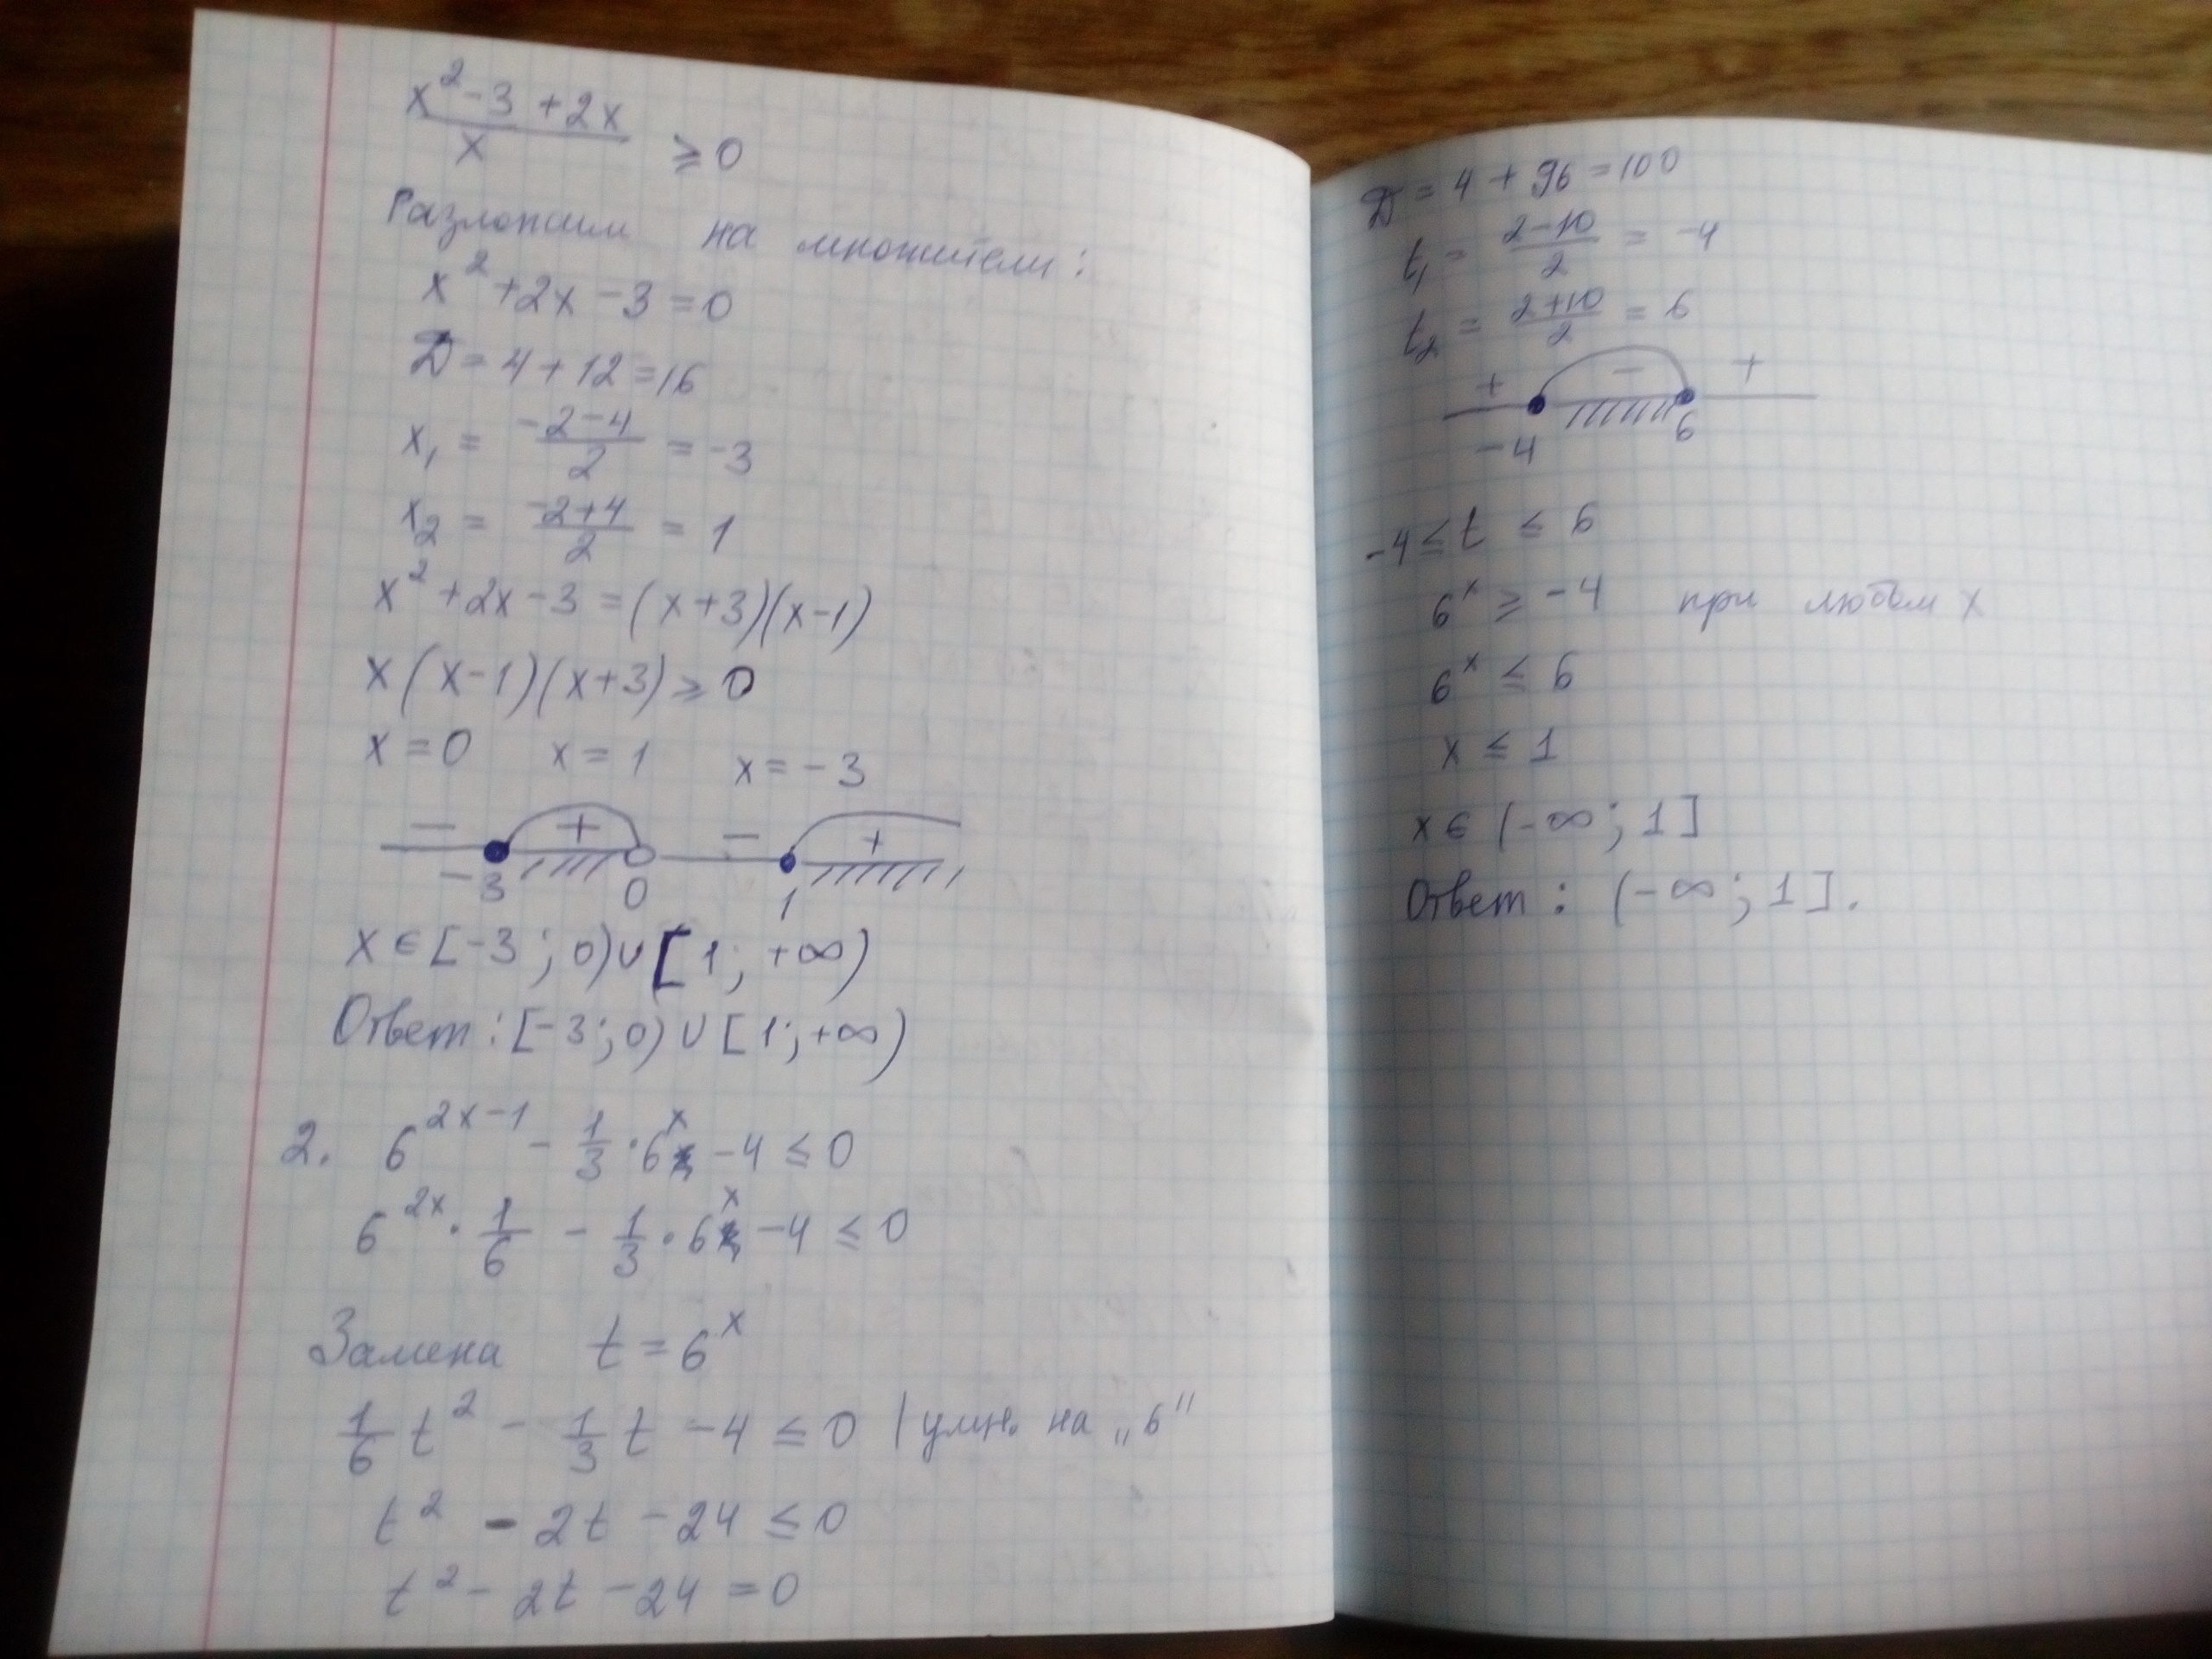 x² - 3 + 2x / x ≥ 0
Разложим на множители:
x² + 2x - 3 = 0
D = 4 + 12 = 16
x₁ = (-2-4)/2 = -3
x₂ = (-2+4)/2 = 1
x² + 2x - 3 = (x+3)(x-1)
x(x-1)(x+3) ≥ 0
x = 0 x = 1 x = -3
- + - +
-3 0 1
x ∈ [-3; 0) ∪ [1; +∞)
Ответ: [-3; 0) ∪ [1; +∞)
2. 6^(2x-1) - 1/3 · 6^x - 4 ≤ 0
6^(2x) · 1/6 - 1/3 · 6^x - 4 ≤ 0
Замена t = 6^x
1/6 t² - 1/3 t - 4 ≤ 0 | умн. на „6"
t² - 2t - 24 ≤ 0
t² - 2t - 24 = 0
D = 4 + 96 = 100
t₁ = (2-10)/2 = -4
t₂ = (2+10)/2 = 6
+ - +
-4 6
-4 ≤ t ≤ 6
6^x ≥ -4 при любом x
6^x ≤ 6
x ≤ 1
x ∈ (-∞; 1]
Ответ: (-∞; 1].